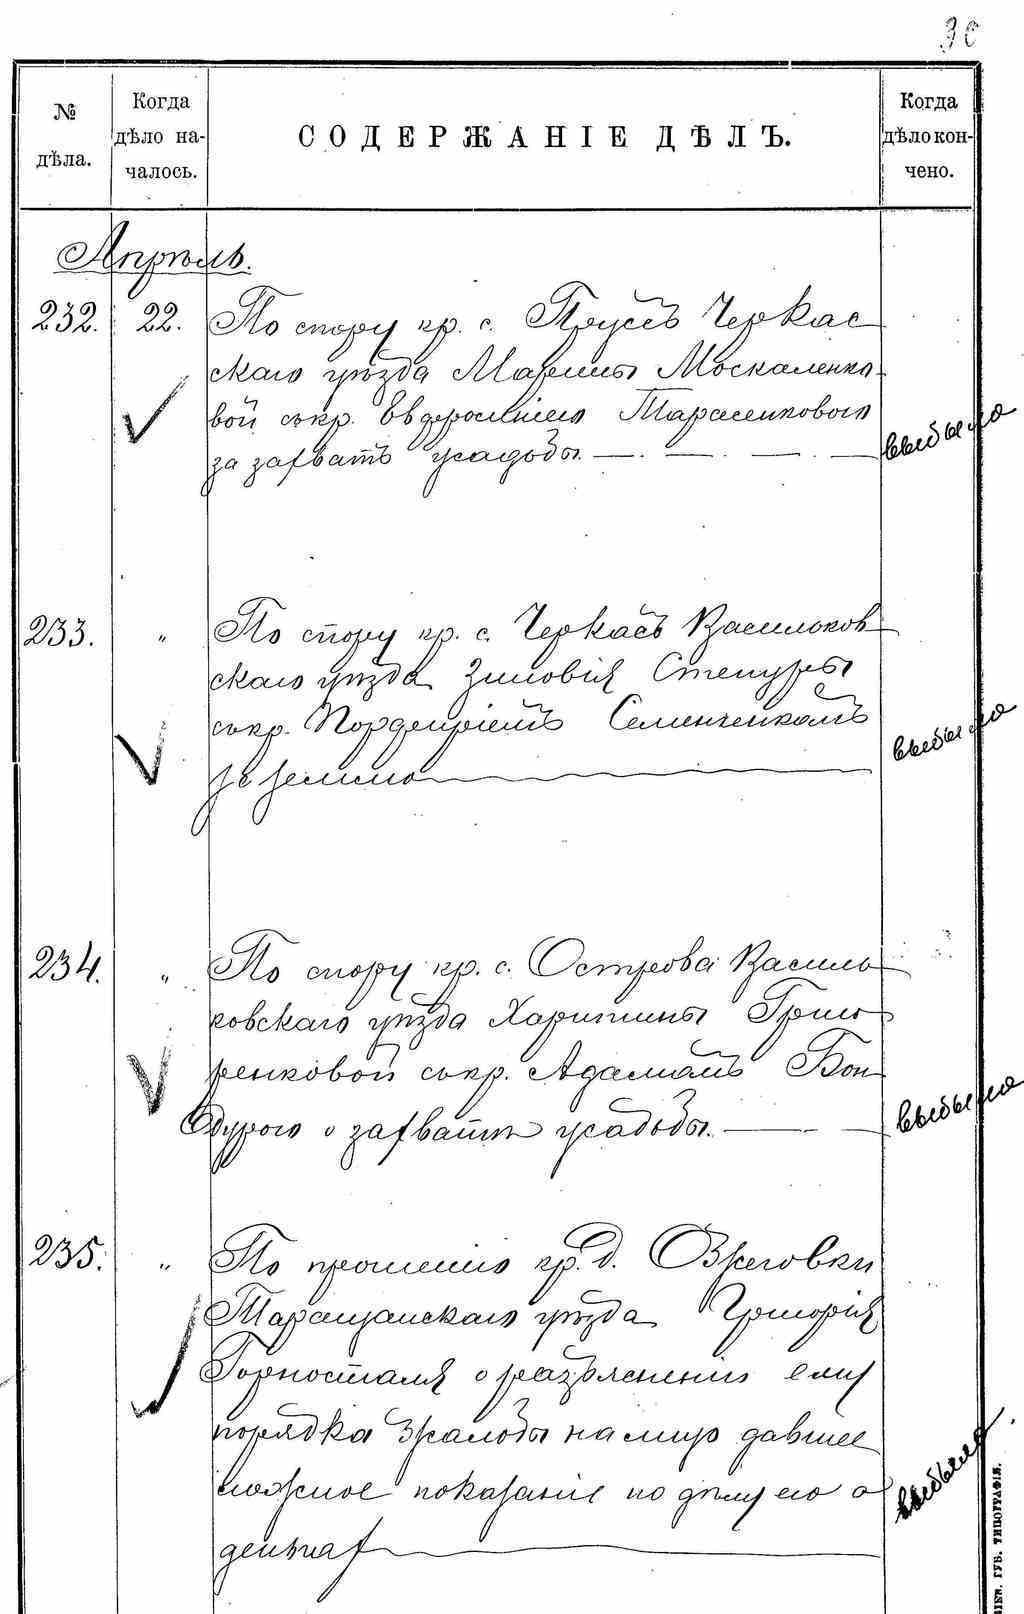 30
№ дѣла.
Когда дѣло на-чалось.
СОДЕРЖАНІЕ ДѢЛЪ.
Когда дѣло кон-чено.
Апрѣль.
232. 22. По спору кр. с. Прусъ Черкас
скаго уѣзда Марины Москаленко
вой съ кр. Евфросиніею Тарасенковою
за захватъ усадьбы.
выбыло
233. " По спору кр. с. Черкасъ Васильков
скаго уѣзда Зиновія Стенуры
съ кр. Порфиріемъ Семенченкомъ
за землю
выбыло
234. " По спору кр. с. Острова Василь
ковскаго уѣзда Харитины Григо
ренковой съ кр. Адамомъ Бон
дуромъ о захватѣ усадьбы.
выбыло
235. " По прошенію кр. д.
Таращанскаго уѣзда Григорія
Горносталя о разъясненіи ему
порядка жалобы на лицо давшее
ложное показаніе по дѣлу его о
деньгах
выбыло
ГУБ. ТИПОГРАФІЯ.